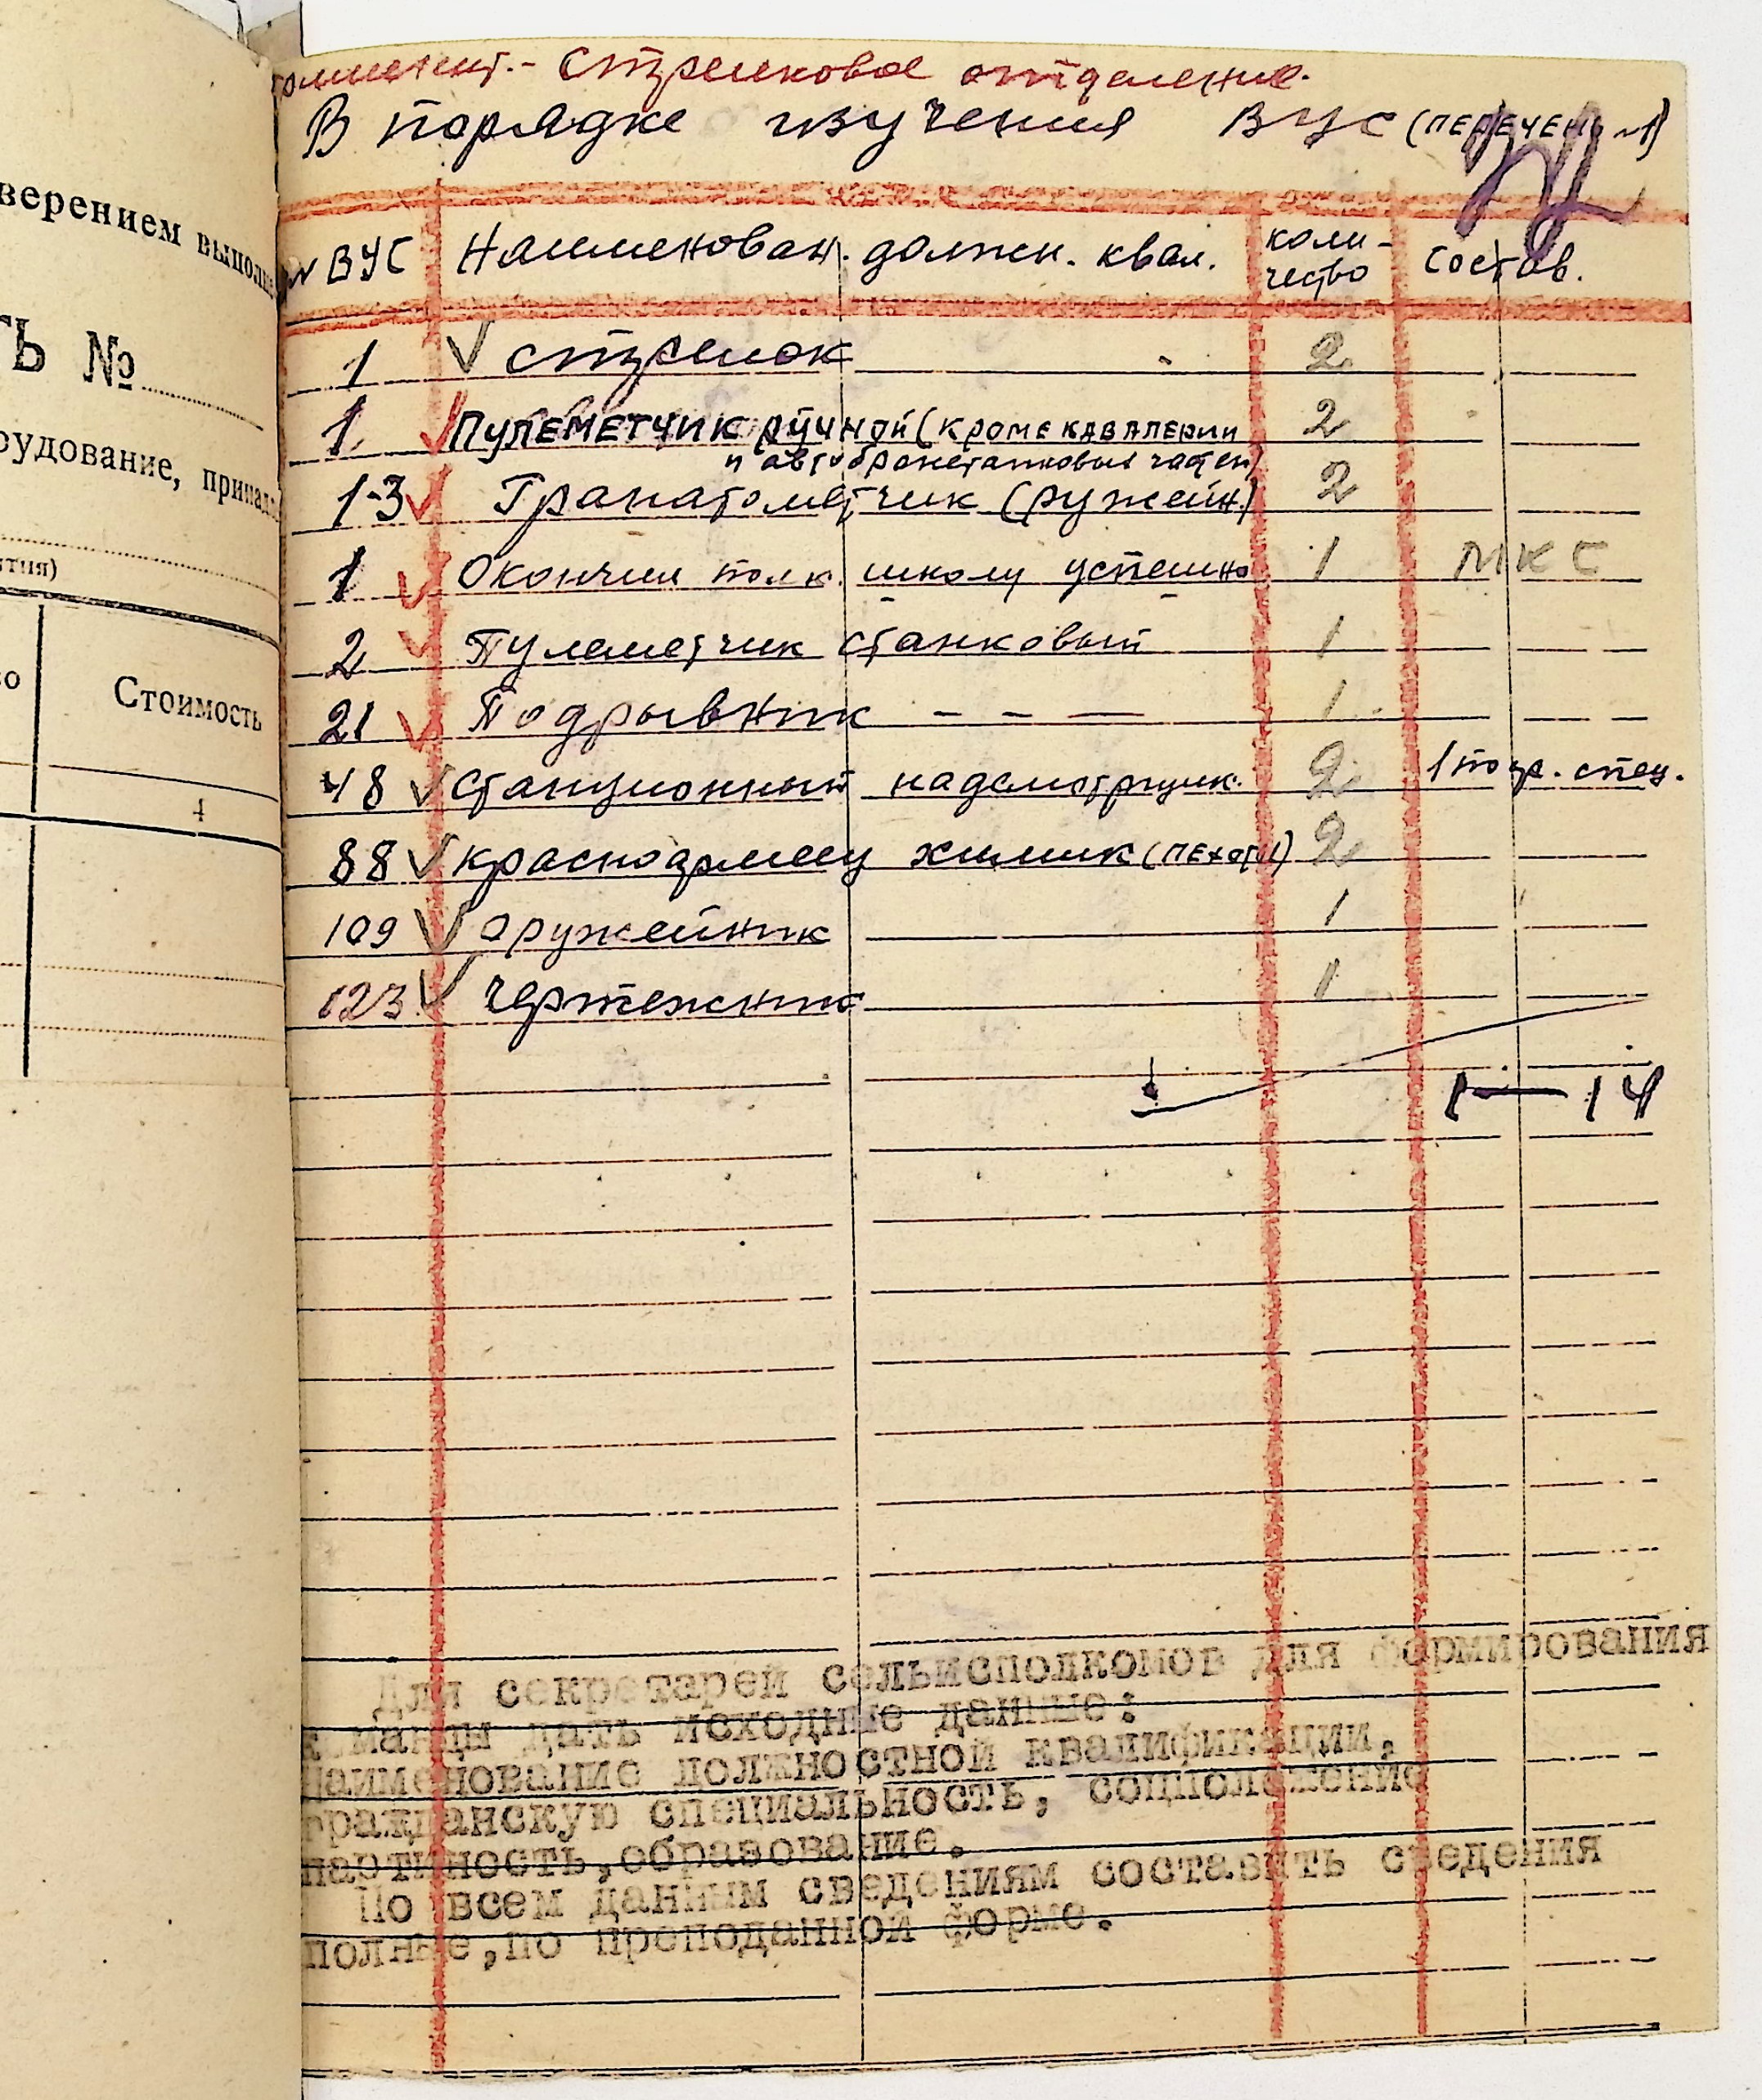 Стрелковое отделение.
В порядке изучения ВУС (ПЕРЕЧЕНЬ №1)
верением выполне
№ ВУС Наименован. должн. квал. коли-чество Состав.
ТЬ №
1 стрелок 2
1 ПУЛЕМЕТЧИК РУЧНОЙ (КРОМЕ КАВАЛЕРИИ 2
и автобронетанковых частей)
рудование, принадл
1-3 Гранатометчик (ружейн.) 2
тия)
1 Окончил полк. школу успешно 1 МКС
2 Пулеметчик станковый 1
о Стоимость
21 Подрывник - - — 1
48 Станционный надсмотрщик. 2 1 погр. спец.
4
88 красноармеец химик (ПЕХОТЫ) 2
109 Оружейник 1
123 чертежник 1
1 — 14
Для секретарей сельисполкомов для формирования
команды дать исходные данные:
наименование должностной квалификации,
гражданскую специальность, соцположение
партийность,образование.
По всем данным сведениям составить сведения
полные,по преподанной форме.